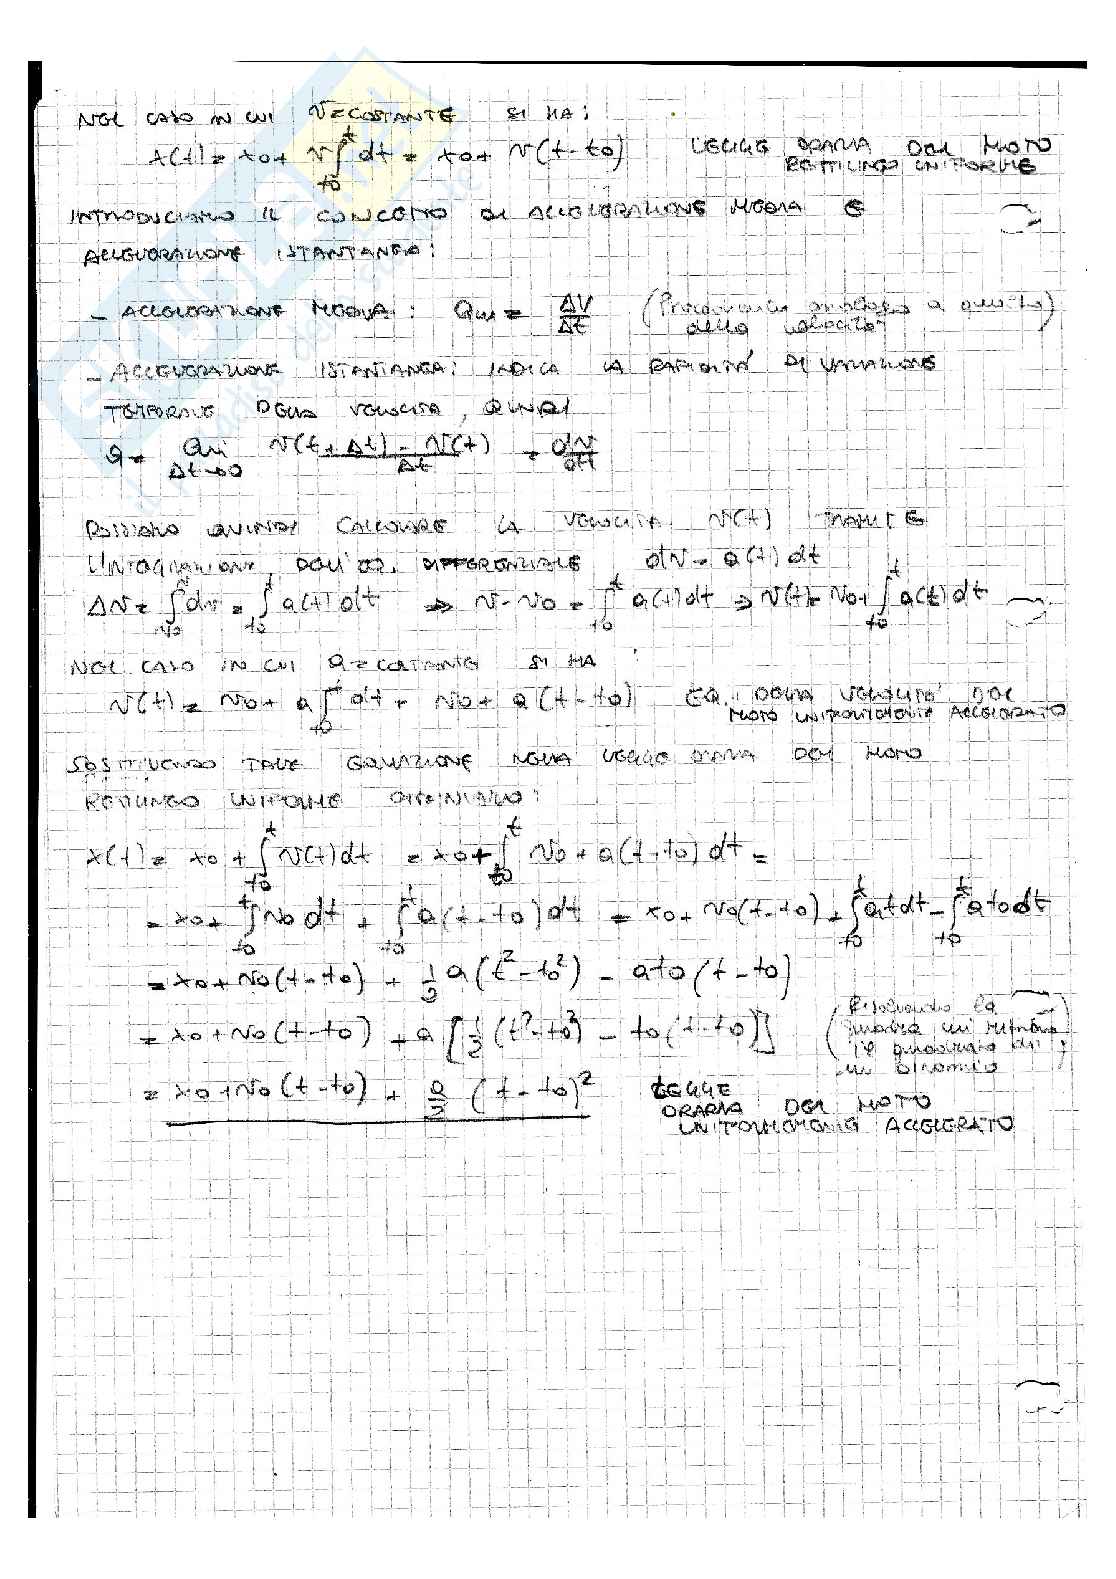 NEL CASO IN CUI v = COSTANTE SI HA:
x(t) = x0 + v∫t0^t dt = x0 + v(t-t0) LEGGE ORARIA DEL MOTO
RETTILINEO UNIFORME
INTRODUCIAMO IL CONCETTO DI ACCELERAZIONE MEDIA E
ACCELERAZIONE ISTANTANEA:
- ACCELERAZIONE MEDIA: am = ΔV/Δt (Procedimento analogo a quello
della velocità)
- ACCELERAZIONE ISTANTANEA: INDICA LA RAPIDITÀ DI VARIAZIONE
TEMPORALE DELLA VELOCITÀ, QUINDI
a = lim Δt→0 v(t+Δt) - v(t) / Δt = dv/dt
POSSIAMO QUINDI CALCOLARE LA VELOCITÀ v(t) TRAMITE
L'INTEGRAZIONE DELL'EQ. DIFFERENZIALE dv = a(t) dt
Δv = ∫v0^v dv = ∫t0^t a(t) dt ⇒ v - v0 = ∫t0^t a(t) dt ⇒ v(t) = v0 + ∫t0^t a(t) dt
NEL CASO IN CUI a = COSTANTE SI HA:
v(t) = v0 + a∫t0^t dt = v0 + a(t-t0) EQ. DELLA VELOCITÀ DEL
MOTO UNIFORMEMENTE ACCELERATO
SOSTITUENDO TALE EQUAZIONE NELLA LEGGE ORARIA DEL MOTO
RETTILINEO UNIFORME OTTENIAMO:
x(t) = x0 + ∫t0^t v(t) dt = x0 + ∫t0^t v0 + a(t-t0) dt =
= x0 + ∫t0^t v0 dt + ∫t0^t a(t-t0) dt = x0 + v0(t-t0) + ∫t0^t at dt - ∫t0^t at0 dt
= x0 + v0(t-t0) + 1/2 a(t² - t0²) - at0(t-t0)
= x0 + v0(t-t0) + a[1/2(t² - t0²) - t0(t-t0)] (Risolvendo la
quadra mi ritrovo
il quadrato di
un binomio);
= x0 + v0(t-t0) + a/2 (t-t0)² LEGGE
ORARIA DEL MOTO
UNIFORMEMENTE ACCELERATO